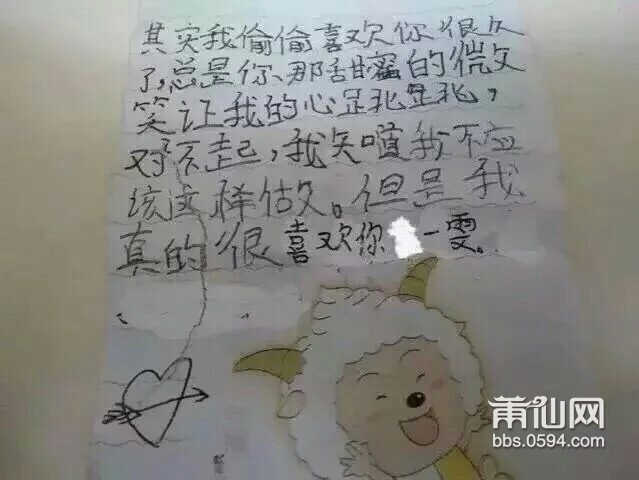 其实我偷偷喜欢你很久
了,总是你那甜蜜的微文
笑让我的心足兆足兆,
对不起,我矢噵我不应
该这样做。但是我
真的很喜欢你 一雯。
莆仙网
bbs.0594.com